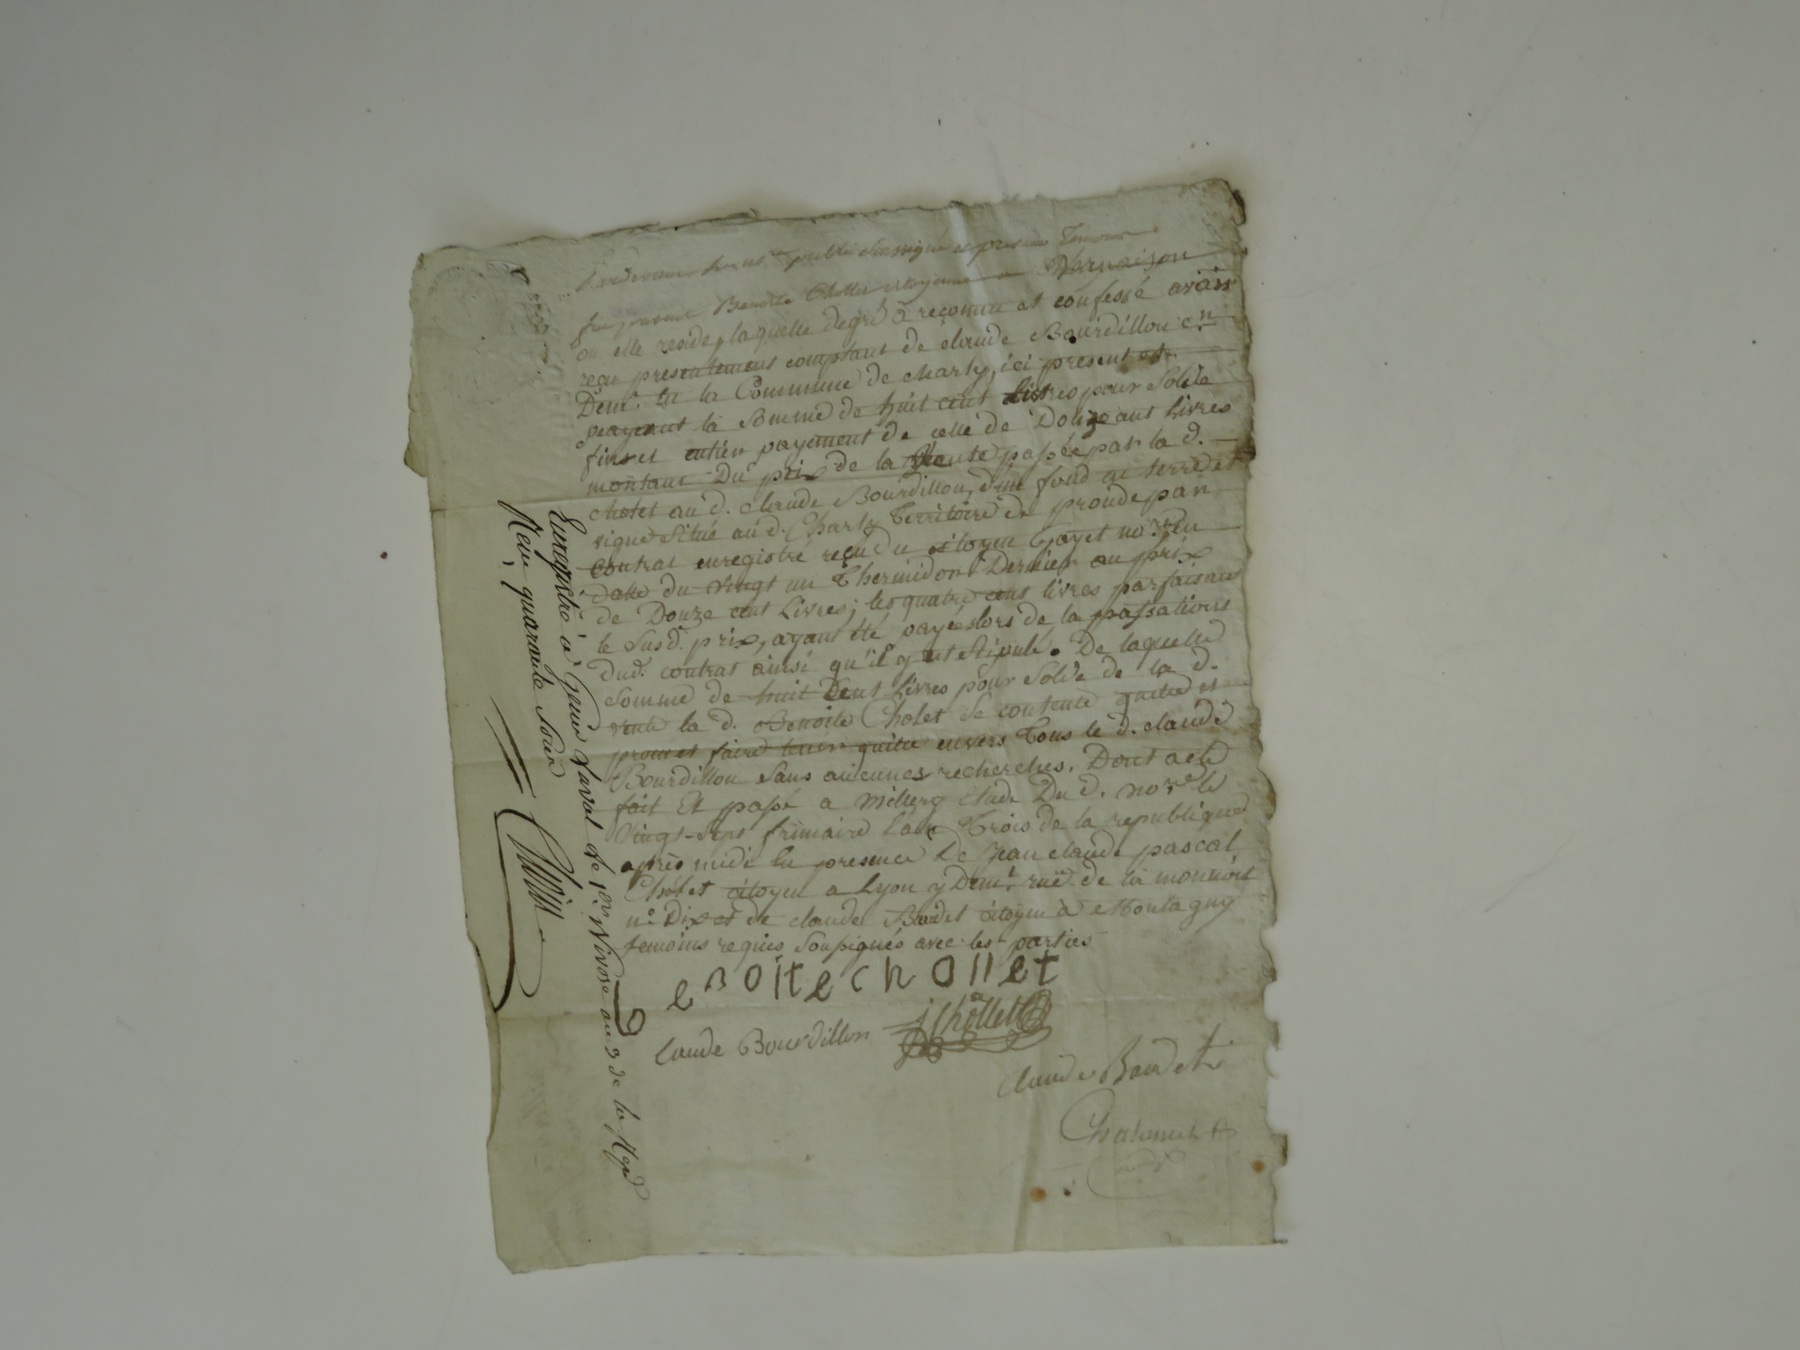 Pardevant le not.re public soussigné et presens Temoins
fut presente Benoite Chollet citoyenne a Vernaison
ou elle reside, laquelle degré à reconnu et confessé avoir
reçu presentement comptant de claude Bourdillon c.n
Dem.t En la Commune de charly, ici present et
payant la Somme de huit cent Livres pour Solde
fin et entier payement de celle de Douze cent Livres
montant Du prix de la Vente passée par la d.
cholet au d. claude Bourdillon, d'un fond en terre et
vigne Situé au d. Charly Territoire de proude par
Contrat enregistré reçu du citoyen Gayet no.re En
datte du vingt un Thermidor Dernier au prix
de Douze cent Livres; les quatre cent livres parfaisant
le Susd. prix, ayant été payés lors de la passation
dud. contrat ainsi qu'il y est stipulé. De laquelle
Somme de huit Cent Livres pour Solde de la d.
vente la d. Benoite Cholet Se contente quitte et
promet faire tenir quitte envers Tous le d. claude
Bourdillon Sans aucunes recherches. Dont acte
fait Et passé a Millery Etude Du d. no.re le
Vingt-Sept frimaire L'an Trois de la republique
après midi En presence de Jean claude pascal
Cholet citoyen a Lyon y Dem.t ruë de la monnoie
n.o Dix et de claude Bodet citoyen à Montagny
temoins requis Soussignés avec les parties
eBOITe CHOllet
Claude Bourdillon j Chollet
Claude Baudet
Enregistré à Genis Laval le 1er Nivose an 3 de la Rep.
Reçu quarante Sous